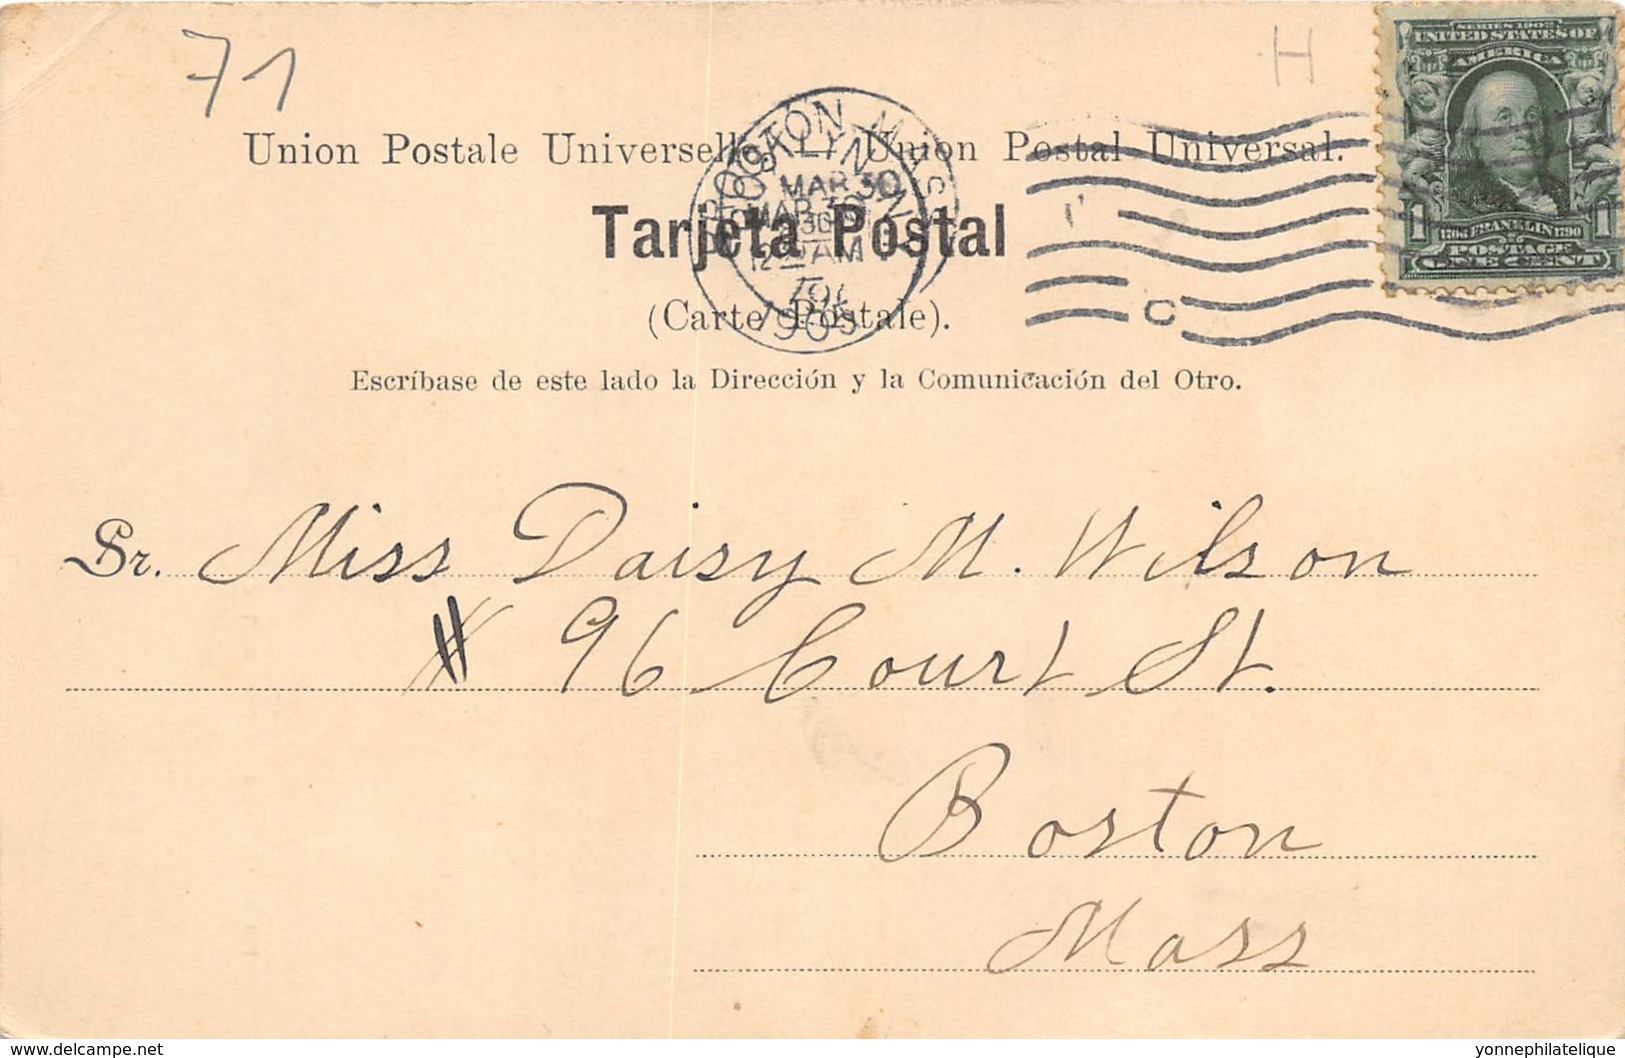 71
H
SERIES 1902
UNITED STATES OF
AMERICA
Union Postale Universelle — Union Postal Universal.
BOSTON, MASS.
BROOKLYN, N.Y.
MAR 30
MAR 30
12 AM
1905
Tarjeta Postal
1 1706 FRANKLIN 1790 1
POSTAGE
ONE CENT
C
(Carte Postale).
Escríbase de este lado la Dirección y la Comunicación del Otro.
Sr. Miss Daisy M. Wilson
# 96 Court St.
Boston
Mass
delcampe.net
yonnephilatelique